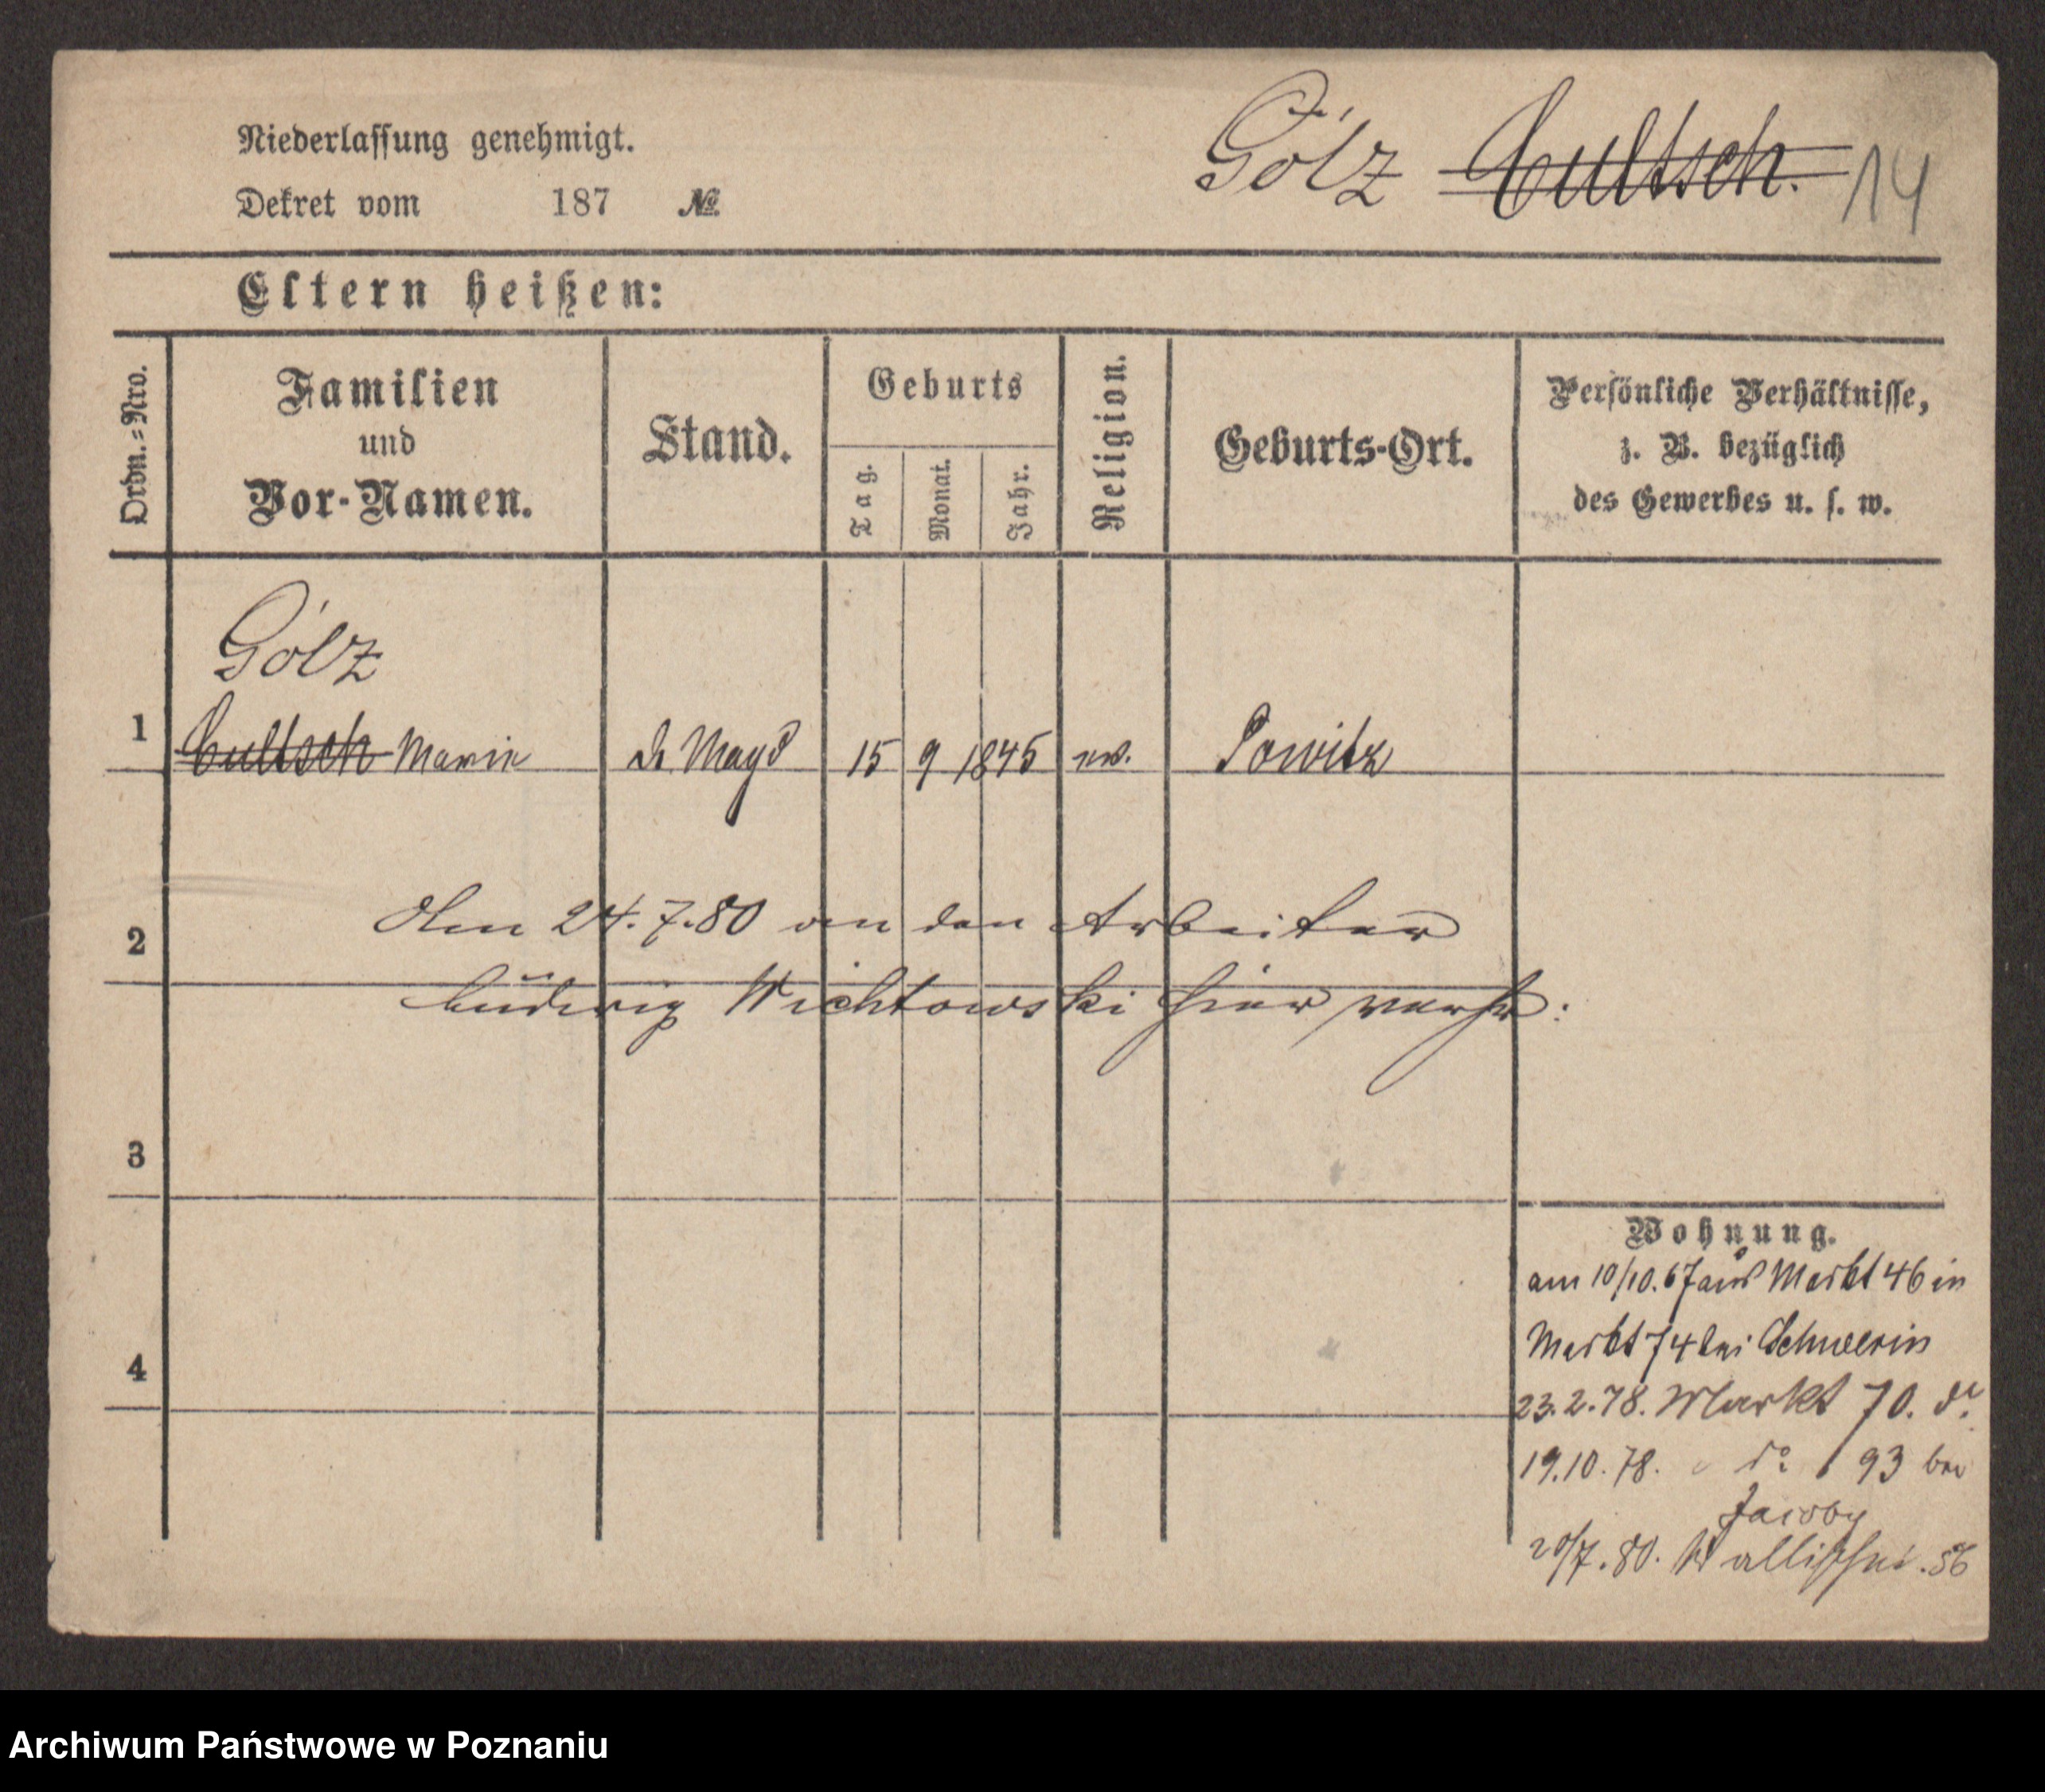 Niederlassung genehmigt.
Dekret vom 187 №
Gólz Cultsch. 14
Eltern heißen:
Ordn.=Nro.
Familien
und
Vor-Namen.
Stand.
Geburts
Tag.
Monat.
Jahr.
Religion.
Geburts-Ort.
Persönliche Verhältnisse,
z. B. bezüglich
des Gewerbes u. s. w.
Gólz
1 Cultsch Marie d. Magd 15 9 1845 ev. Powitz
2 Am 24.7.80 an den Arbeiter
Ludwig Wichtowski hier verh:
3
4
Wohnung.
am 10/10.67 aus Markt 46 in
Markt 74 bei Schwerin
23.2.78. Markt 70. do
19.10.78. do 93 bei
Jacoby
20/7.80. Wallischei. 56